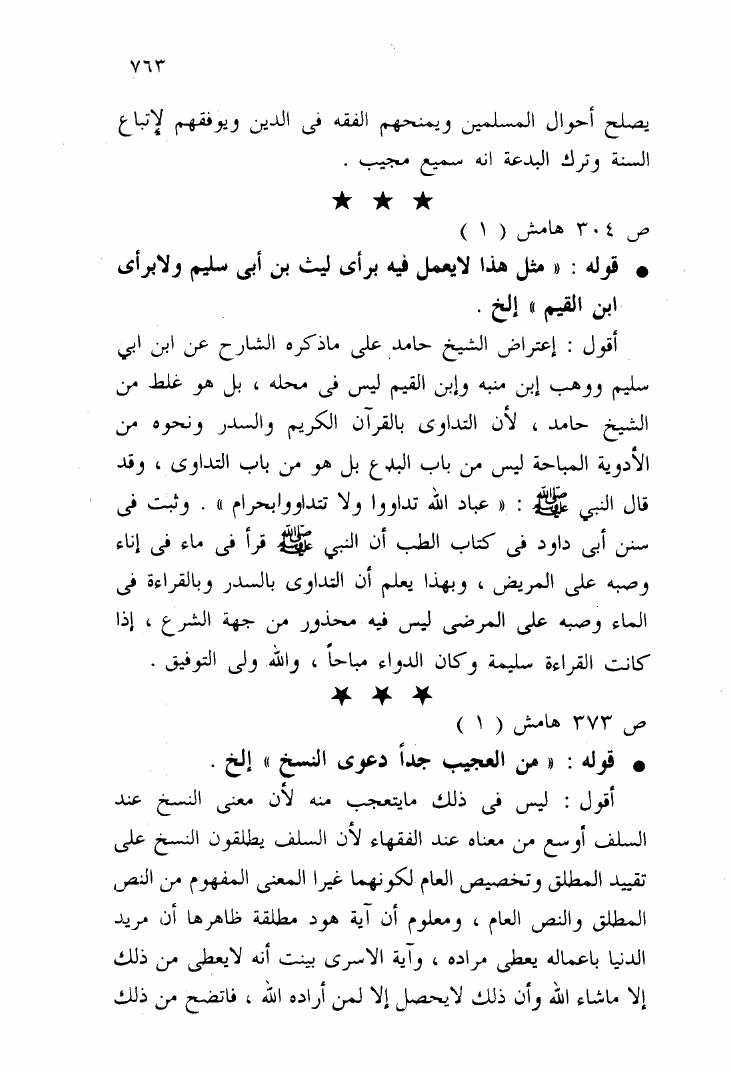 ٧٦٣
يصلح أحوال المسلمين ويمنحهم الفقه فى الدين ويوفقهم لإتباع
السنة وترك البدعة انه سميع مجيب .
★ ★ ★
ص ٣٠٤ هامش ( ١ )
● قوله : « مثل هذا لايعمل فيه برأى ليث بن أبى سليم ولابرأى
ابن القيم » إلخ .
أقول : إعتراض الشيخ حامد على ماذكره الشارح عن ابن ابي
سليم ووهب إبن منبه وإبن القيم ليس فى محله ، بل هو غلط من
الشيخ حامد ، لأن التداوى بالقرآن الكريم والسدر ونحوه من
الأدوية المباحة ليس من باب البدع بل هو من باب التداوى ، وقد
قال النبي ﷺ : « عباد الله تداووا ولا تتداووابحرام » . وثبت فى
سنن أبى داود فى كتاب الطب أن النبي ﷺ قرأ فى ماء فى إناء
وصبه على المريض ، وبهذا يعلم أن التداوى بالسدر وبالقراءة فى
الماء وصبه على المرضى ليس فيه محذور من جهة الشرع ، إذا
كانت القراءة سليمة وكان الدواء مباحاً ، والله ولى التوفيق .
★ ★ ★
ص ٣٧٣ هامش ( ١ )
● قوله : « من العجيب جداً دعوى النسخ » إلخ .
أقول : ليس فى ذلك مايتعجب منه لأن معنى النسخ عند
السلف أوسع من معناه عند الفقهاء لأن السلف يطلقون النسخ على
تقييد المطلق وتخصيص العام لكونهما غيرا المعنى المفهوم من النص
المطلق والنص العام ، ومعلوم أن آية هود مطلقة ظاهرها أن مريد
الدنيا باعماله يعطى مراده ، وآية الاسرى بينت أنه لايعطى من ذلك
إلا ماشاء الله وأن ذلك لايحصل إلا لمن أراده الله ، فاتضح من ذلك